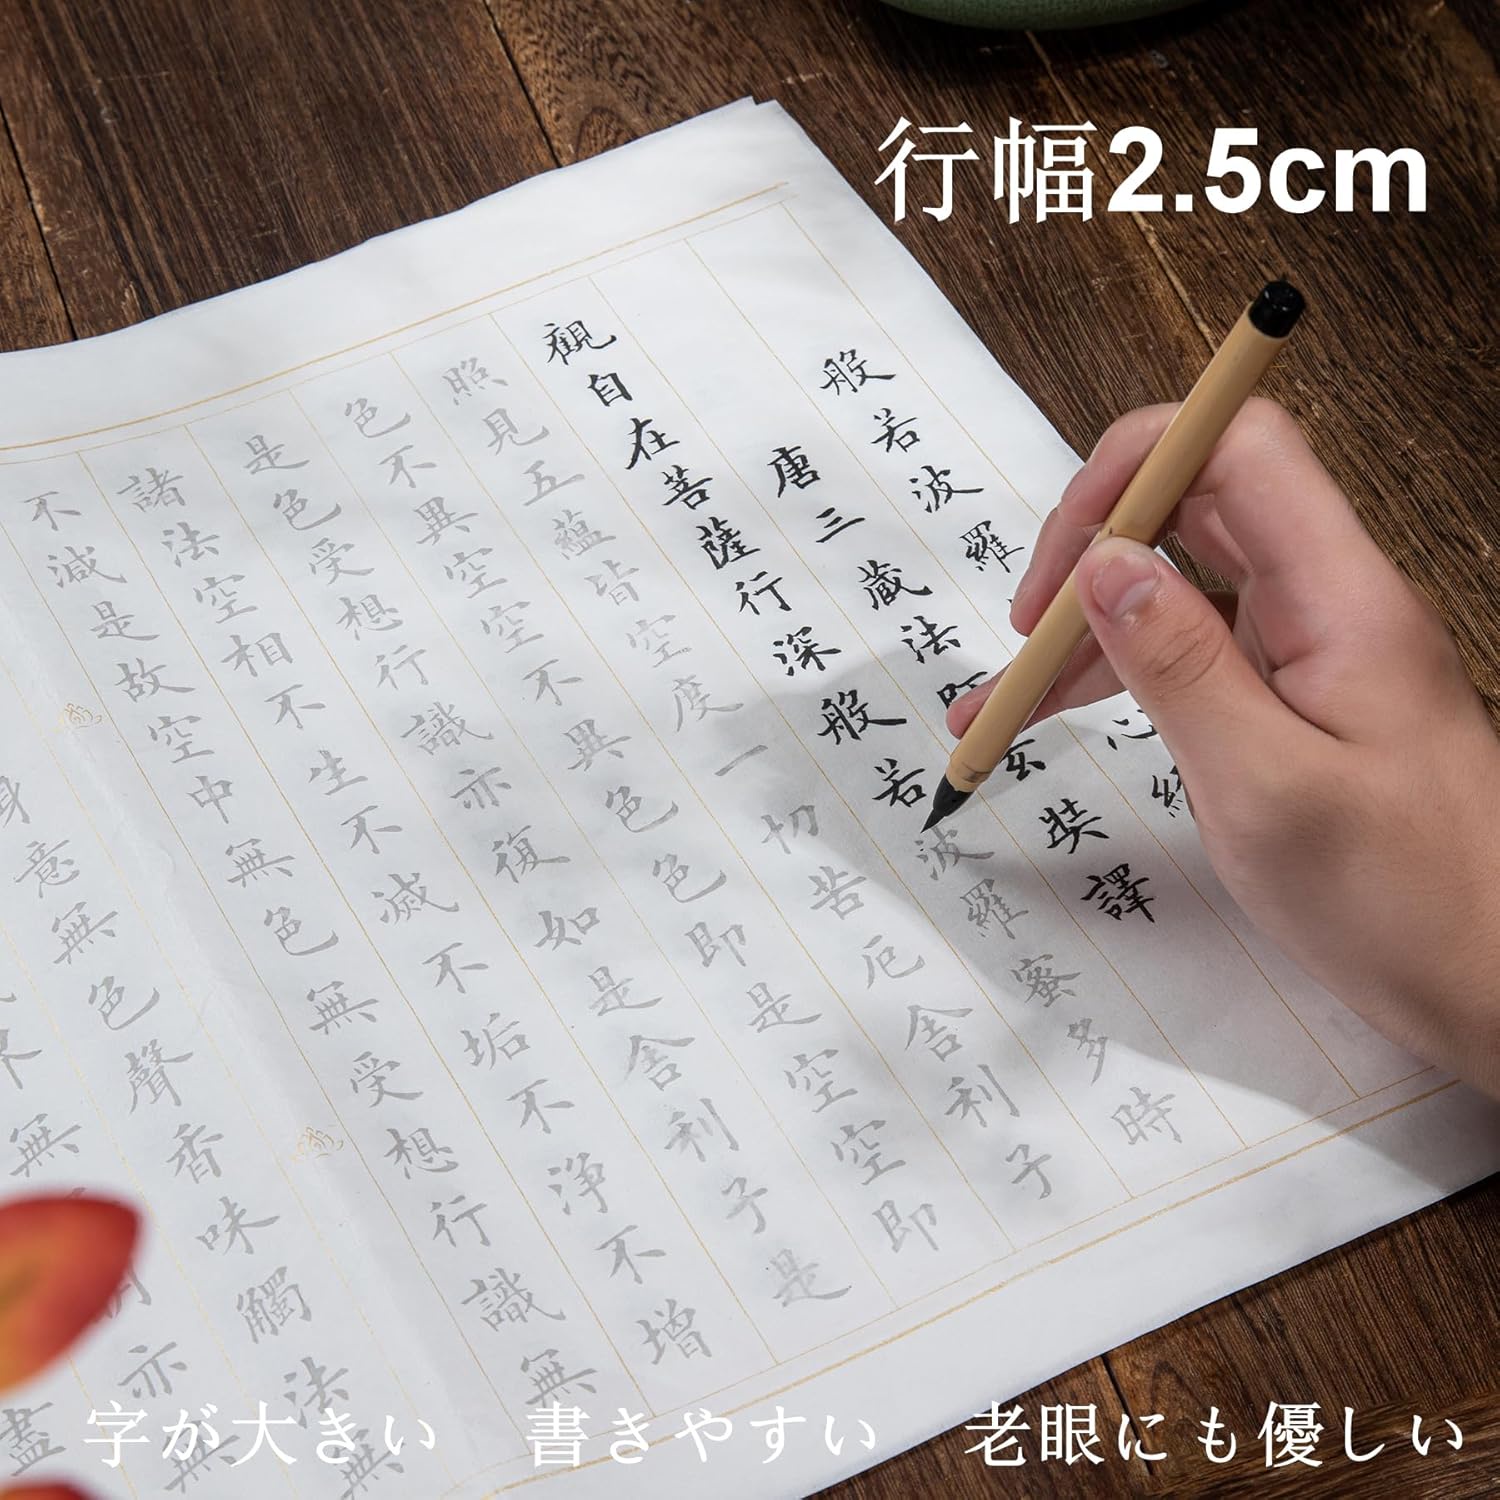 行幅2.5cm
般若波羅心經
唐三蔵法師玄奘譯
觀自在菩薩行深般若波羅蜜多時
照見五蘊皆空度一切苦厄舍利子
色不異空空不異色色即是空空即
是色受想行識亦復如是舍利子是
諸法空相不生不滅不垢不淨不增
不減是故空中無色無受想行識無
身意無色聲香味觸法無
界無明亦無
盡
字が大きい 書きやすい 老眼にも優しい